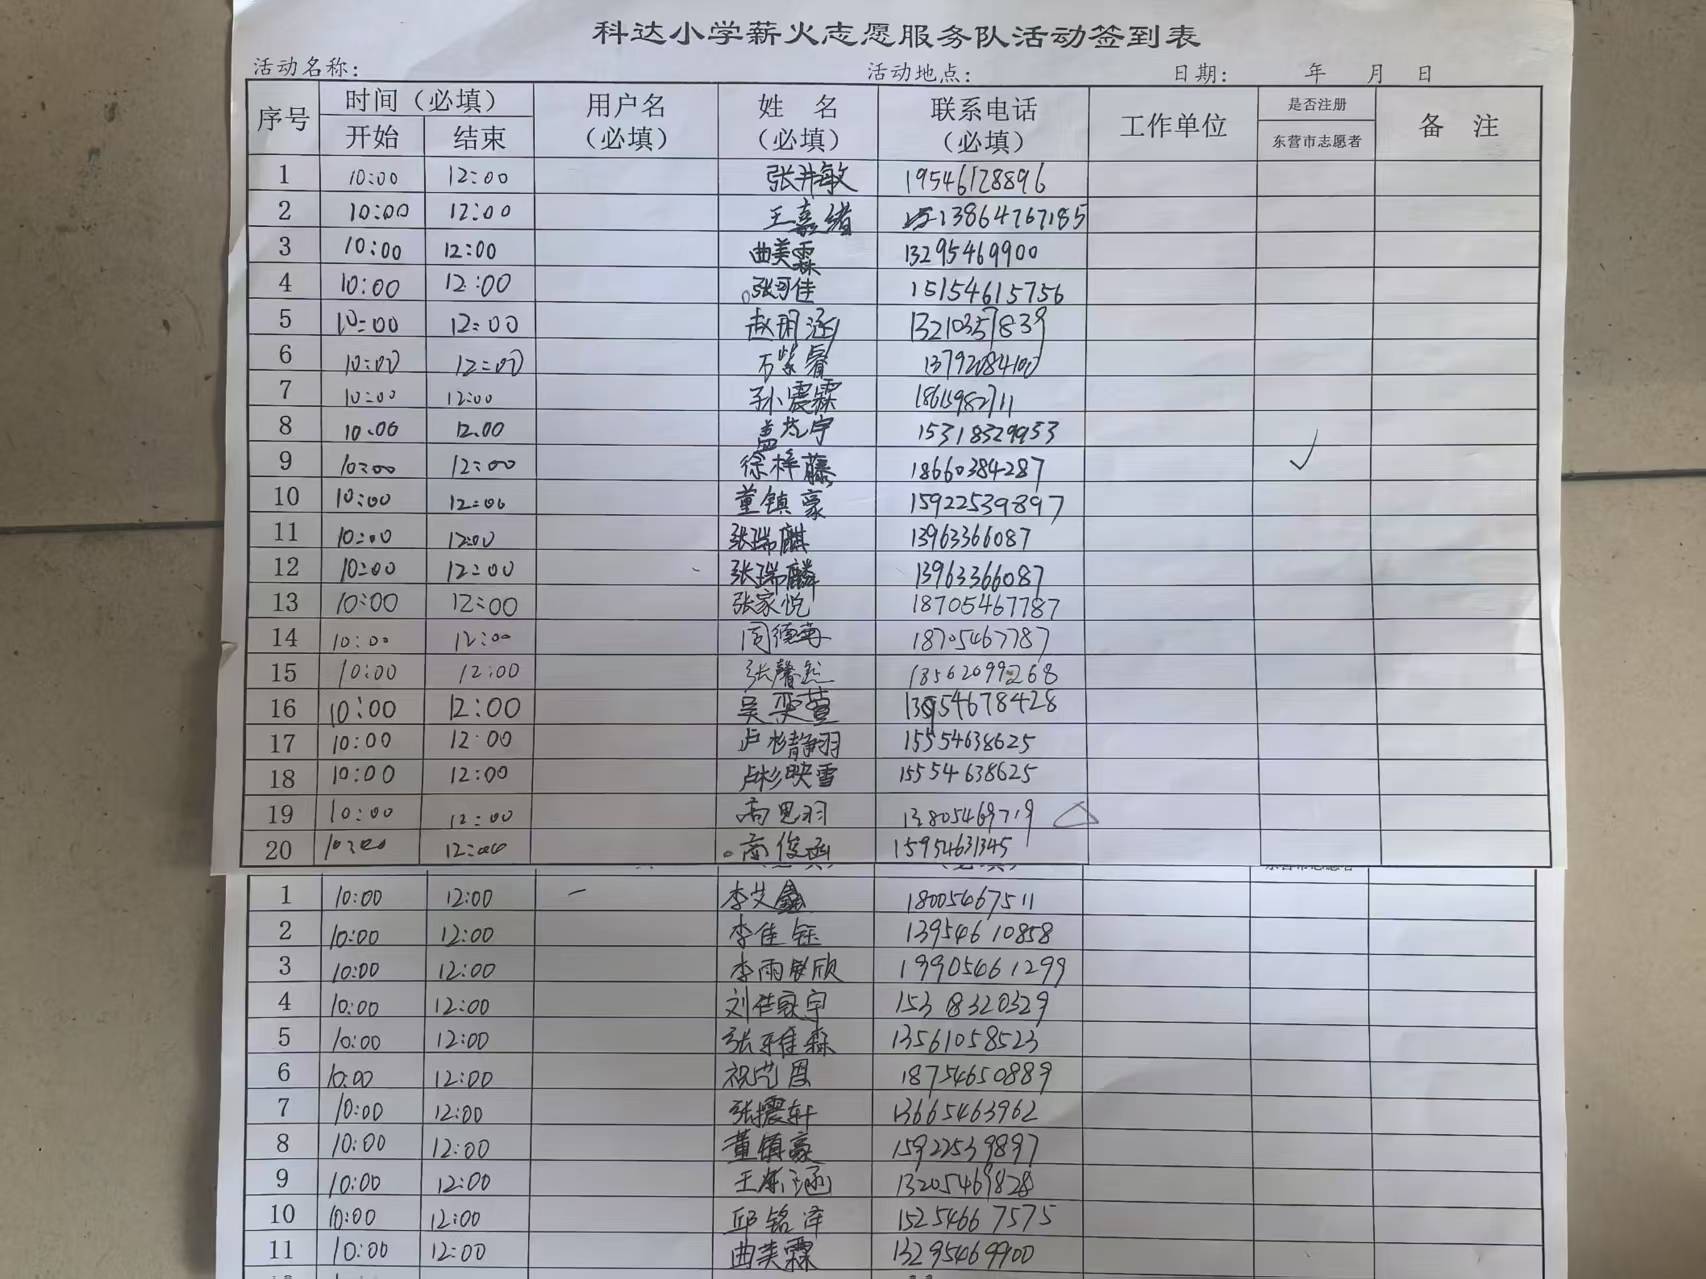 科达小学薪火志愿服务队活动签到表
活动名称: 活动地点: 日期: 年 月 日
序号 时间（必填） 用户名（必填） 姓 名（必填） 联系电话（必填） 工作单位 是否注册 备 注
开始 结束 东营市志愿者
1 10:00 12:00 张井敏 19546128896
2 10:00 12:00 王嘉绪 13864767185
3 10:00 12:00 曲美霖 13295469900
4 10:00 12:00 张可佳 15154615756
5 10:00 12:00 赵玥涵 13210357839
6 10:00 12:00 万紫睿 13792084100
7 10:00 12:00 孙震霖
8 10.00 12.00 盖艺宁 15318329953
9 10:00 12:00 徐梓藤 18660384287 ✓
10 10:00 12:00 董镇豪 15922539897
11 10:00 12:00 张瑞麒 13963366087
12 10:00 12:00 张瑞麟 13963366087
13 10:00 12:00 张家悦 18705467787
14 10:00 12:00 18705467787
15 10:00 12:00 张馨 13562099268
16 10:00 12:00 吴奕萱 13954678428
17 10:00 12:00 卢杉静羽 15554638625
18 10:00 12:00 卢杉映雪 15554638625
19 10:00 12:00 高思羽 13805469719
20 10:00 12:00 商俊函 15954631345
1 10:00 12:00 李艾鑫 18005467511
2 10:00 12:00 李佳钰 13954610858
3 10:00 12:00 李雨宸欣 19905461299
4 10:00 12:00 刘佳宇 15318320329
5 10:00 12:00 张雅森 13561058523
6 10:00 12:00 祝艺恩 18754650889
7 10:00 12:00 张震轩 13665463962
8 10:00 12:00 董镇豪 15922539897
9 10:00 12:00 王涵 13205469828
10 10:00 12:00 邱铭泽 15254667575
11 10:00 12:00 曲美霖 13295469900